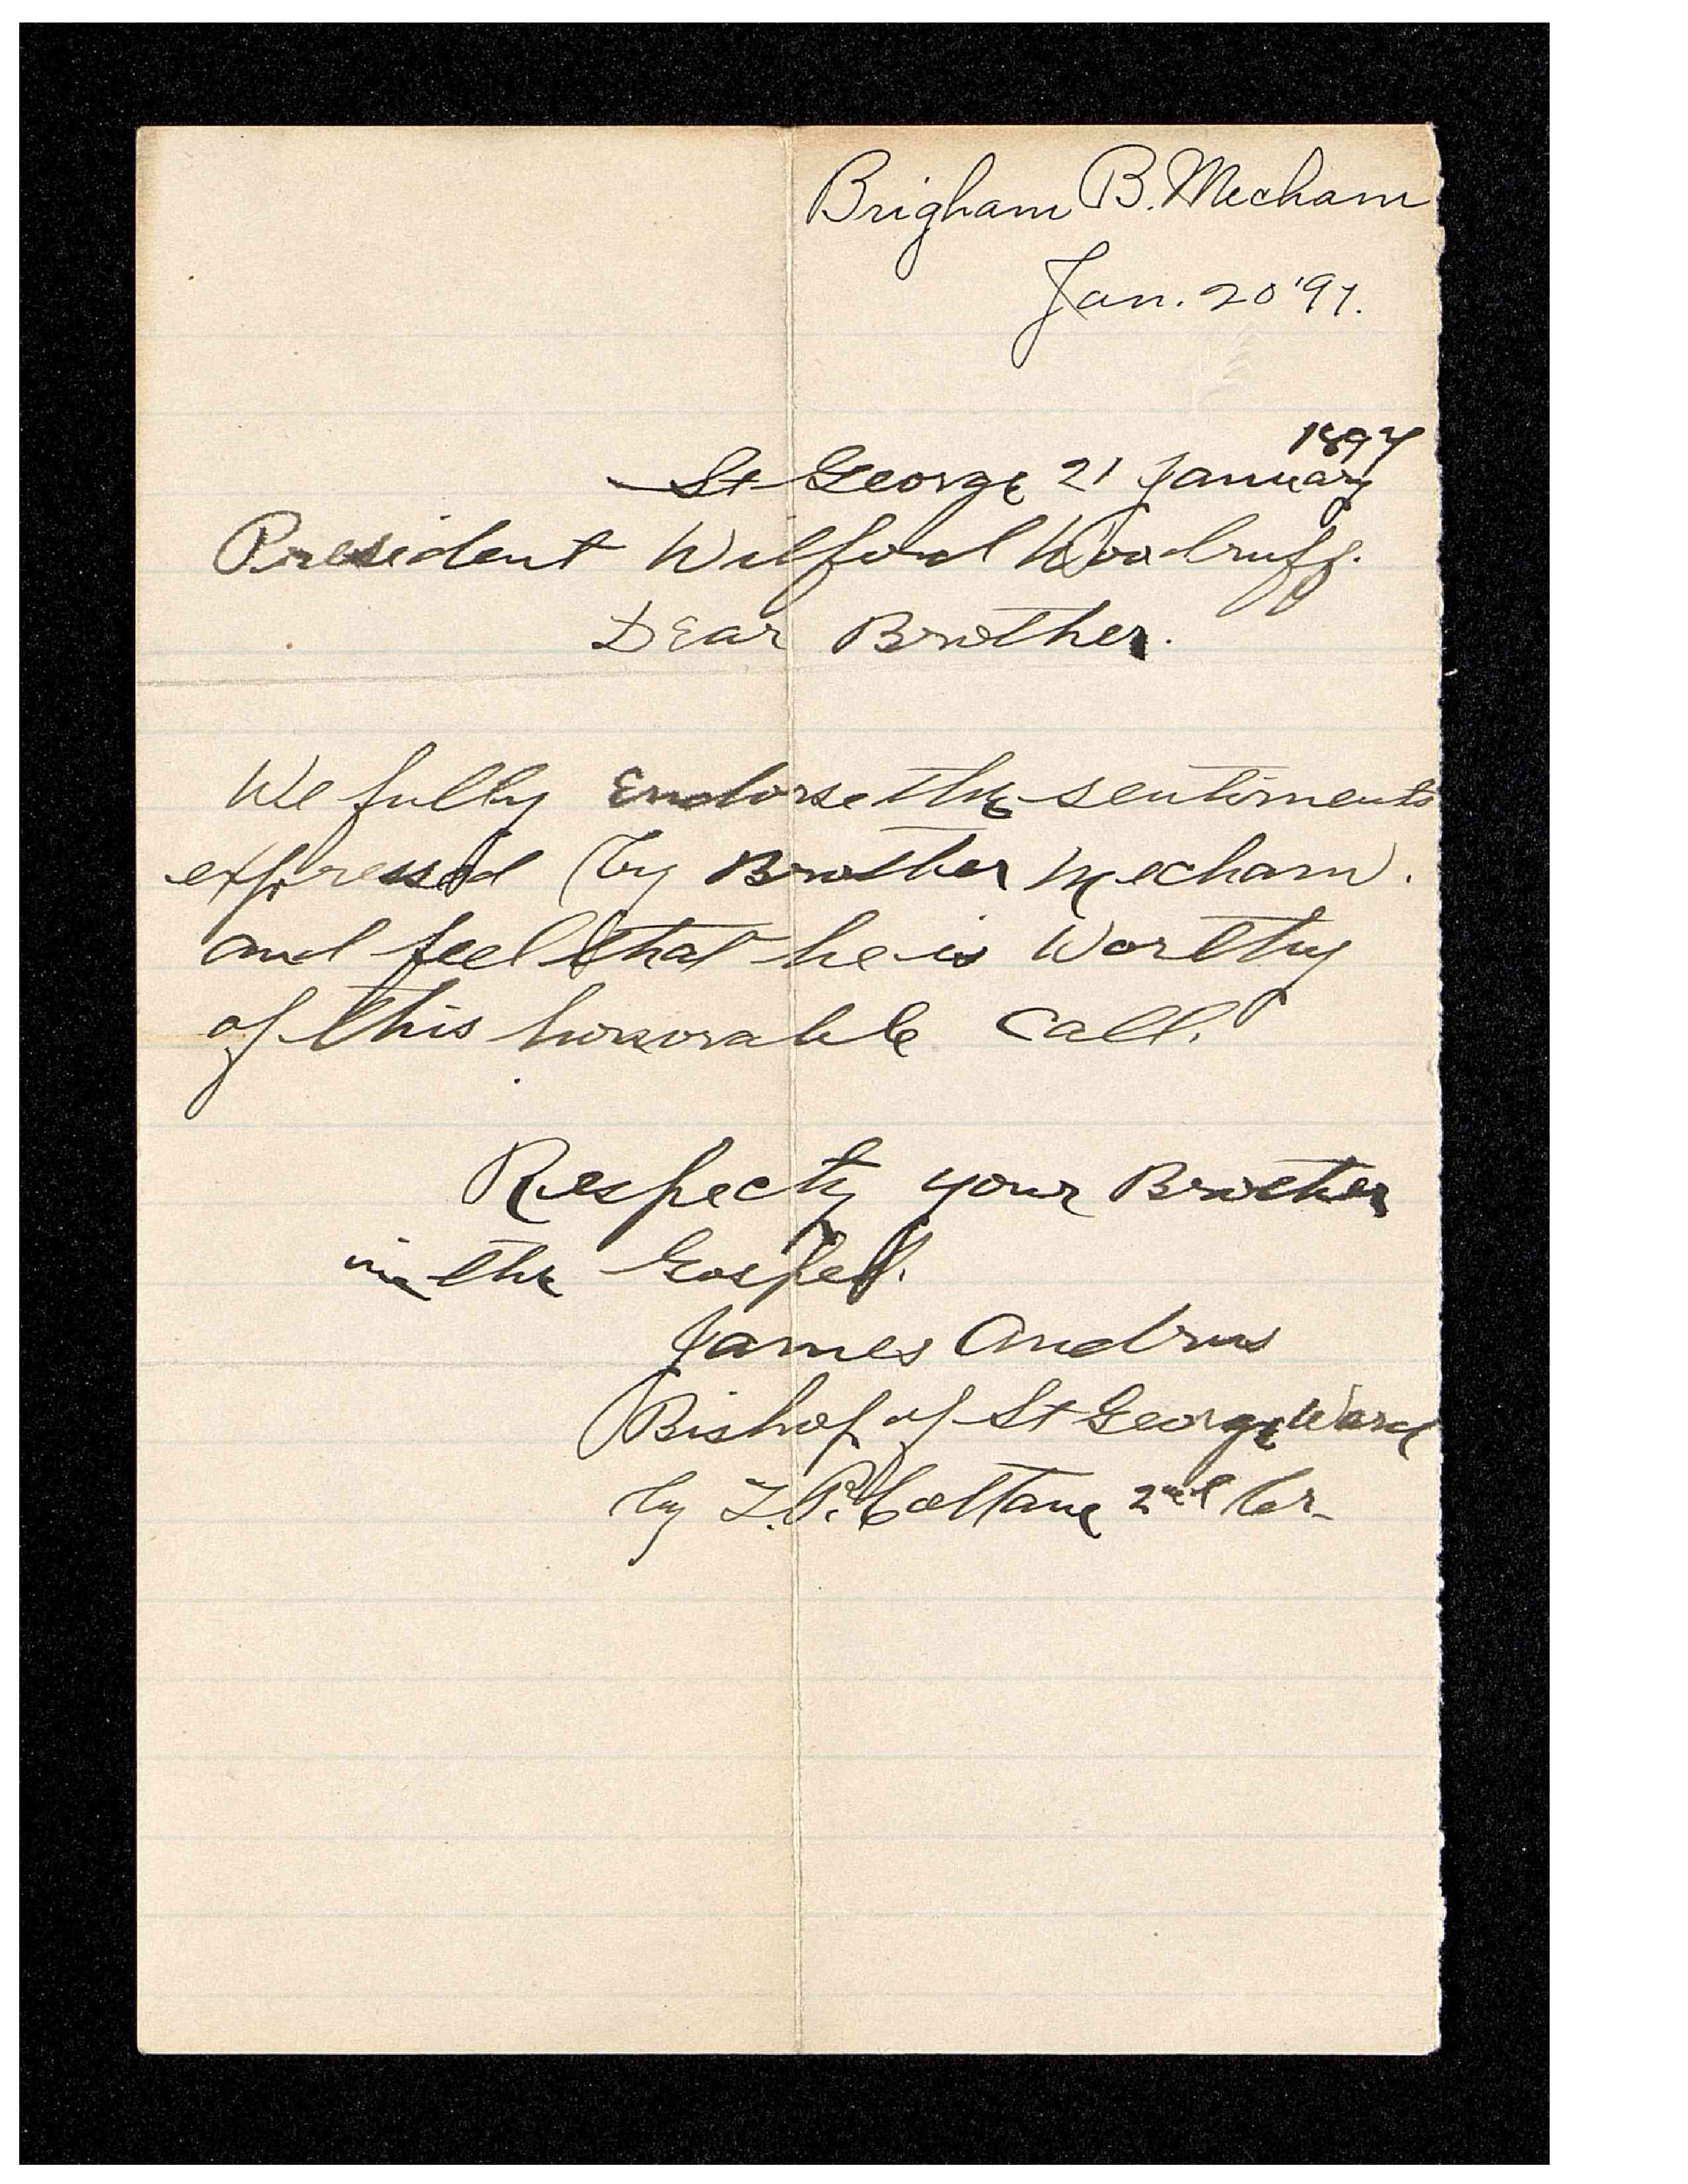 Brigham B. Mecham
Jan. 20 '97.
1897
St George 21 January
President Wilford Woodruff.
Dear Brother.
We fully Endorse the sentiments
expressed by Brother Mecham.
and feel that he is Worthy
of this honorable Call.
Respecty your Brother
in the Gospel.
James Andrus
Bishop of St George Ward
by T. P. Cottam 2nd Cr-